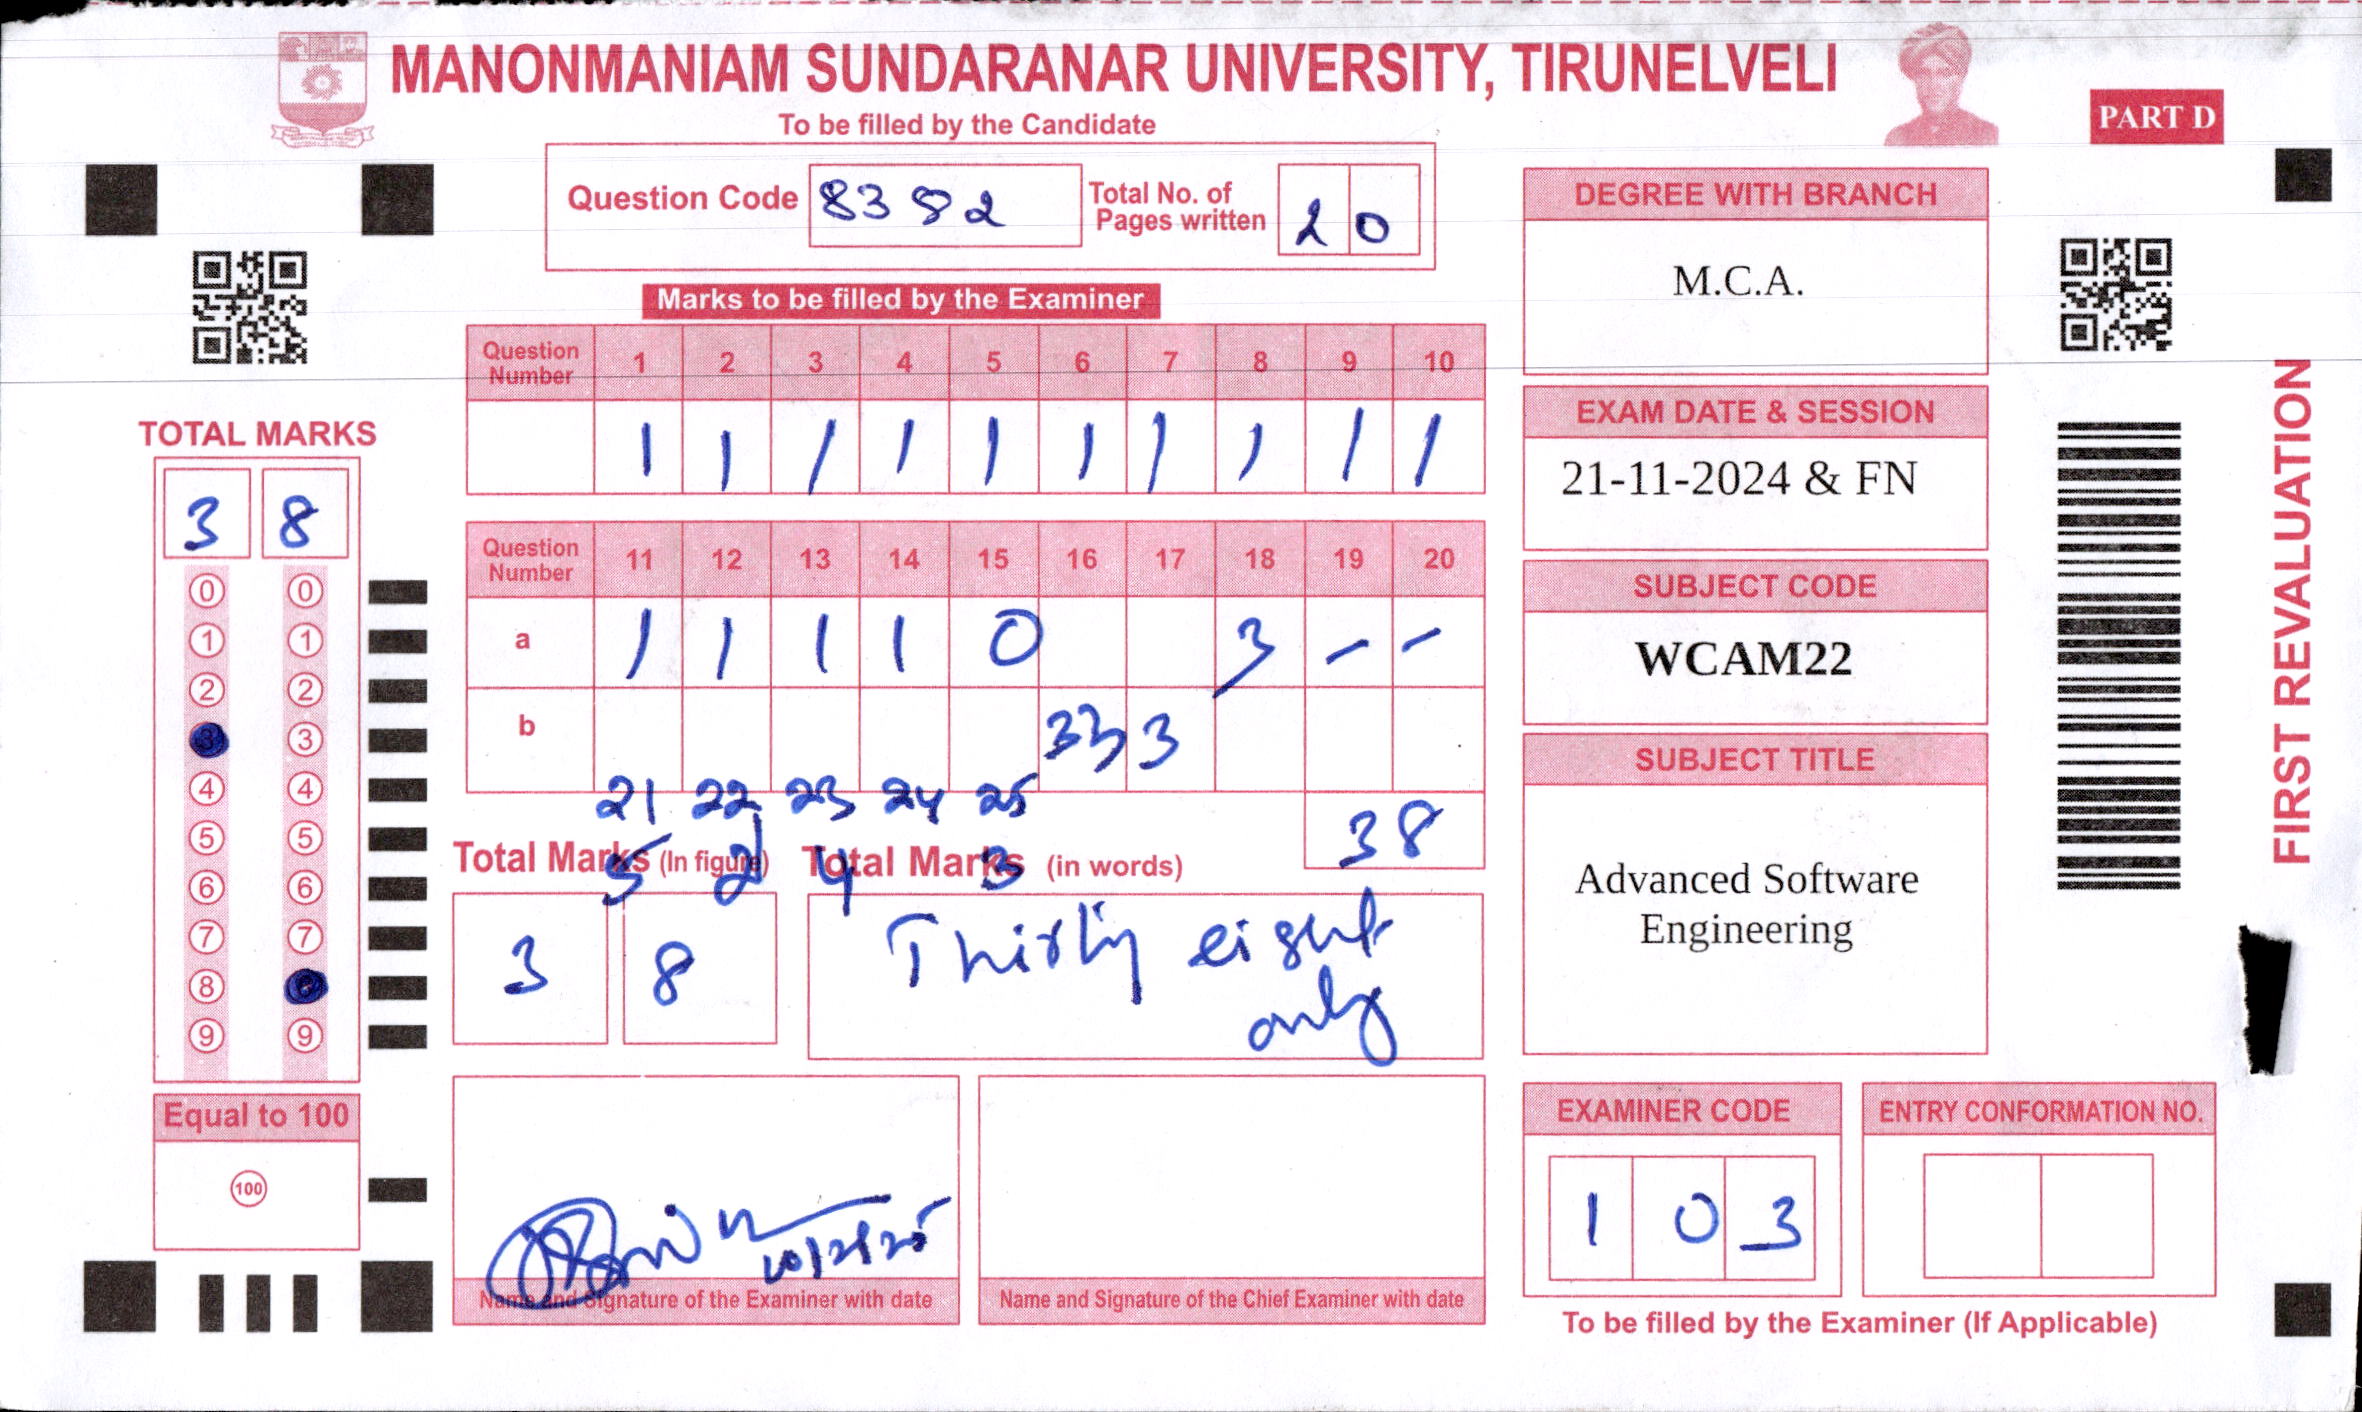 MANONMANIAM SUNDARANAR UNIVERSITY, TIRUNELVELI
To be filled by the Candidate
PART D
Question Code 8382 Total No. of Pages written 20
Marks to be filled by the Examiner
Question Number 1 2 3 4 5 6 7 8 9 10
1 1 1 1 1 1 1 1 1 1
Question Number 11 12 13 14 15 16 17 18 19 20
a 1 1 1 1 0 3 - -
b 3 3
21 22 23 24 25
5 2 4 3
38
Total Marks (In figure) Total Marks (in words)
3 8 Thirty eight
only
10/2/25
Name and Signature of the Examiner with date
Name and Signature of the Chief Examiner with date
TOTAL MARKS
3 8
0 0
1 1
2 2
3 3
4 4
5 5
6 6
7 7
8 8
9 9
Equal to 100
100
DEGREE WITH BRANCH
M.C.A.
EXAM DATE & SESSION
21-11-2024 & FN
SUBJECT CODE
WCAM22
SUBJECT TITLE
Advanced Software
Engineering
EXAMINER CODE
1 0 3
ENTRY CONFORMATION NO.
To be filled by the Examiner (If Applicable)
FIRST REVALUATION